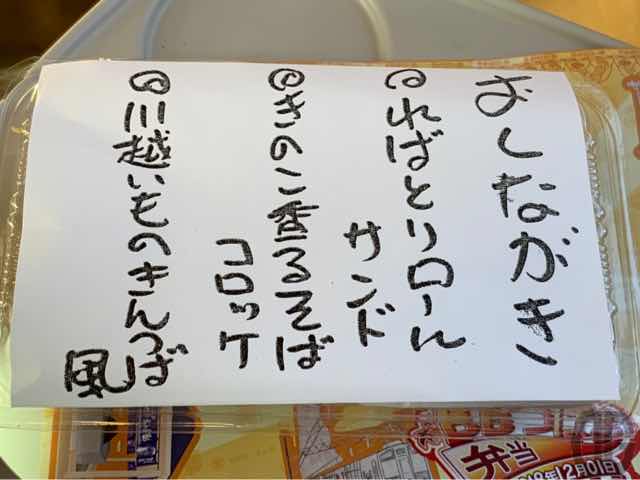 おしながき
◎ればとりロール
サンド
◎きのこ香るそば
コロッケ
◎川越いものきんつば
風
弁当
12月01日